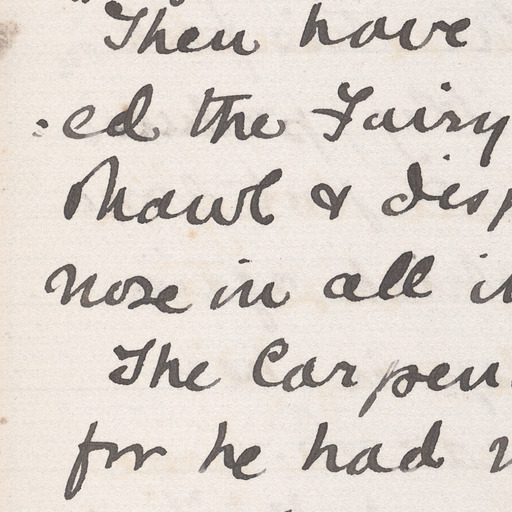 "Then have
-ed the Fairy
shawl & disp
nose in all i
The Carpen
for he had